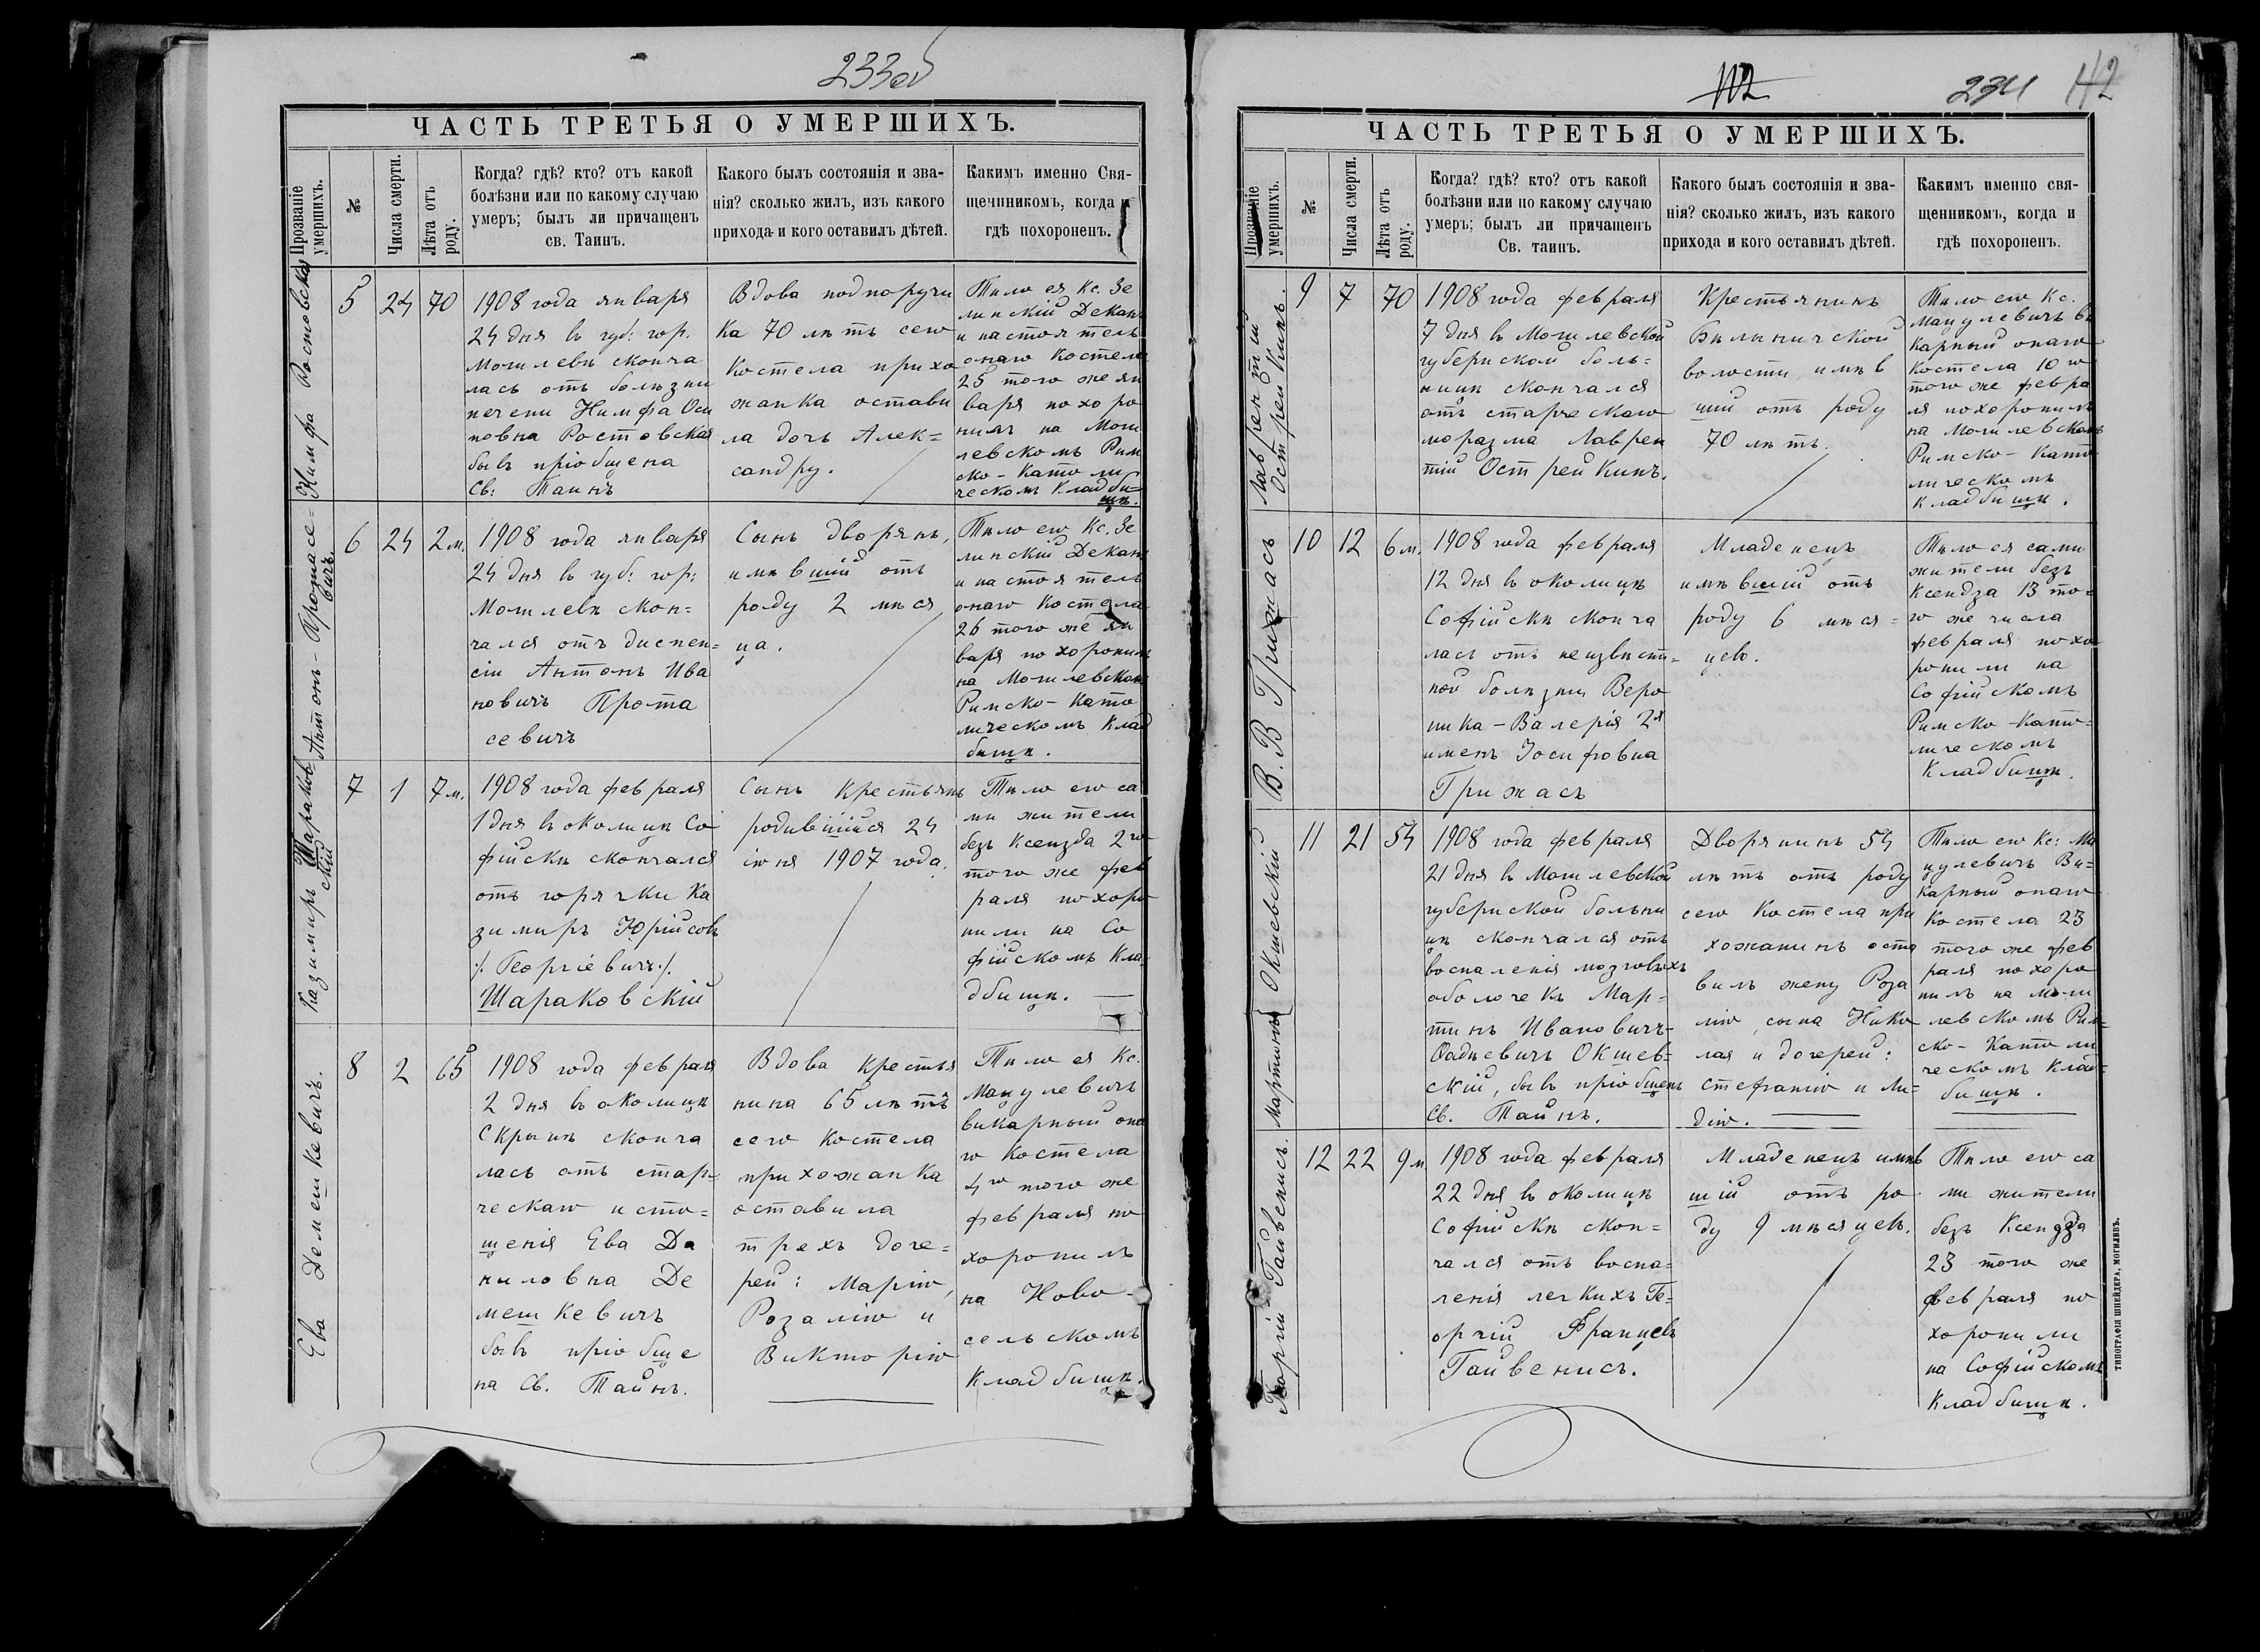 233об
ЧАСТЬ ТРЕТЬЯ О УМЕРШИХЪ.
Прозваніе умершихъ.
№
Числа смерти.
Лѣта отъ роду.
Когда? гдѣ? кто? отъ какой
болѣзни или по какому случаю
умеръ; былъ ли причащенъ
св. Таинъ.
Какого былъ состоянія и зва-
нія? сколько жилъ, изъ какого
прихода и кого оставилъ дѣтей.
Какимъ именно Свя-
щенникомъ, когда и
гдѣ похороненъ.
Нимфа Ростовская
5
24
70
1908 года января
24 дня въ губ: гор.
Могилевѣ сконча
лась отъ болѣзни
печени Нимфа Оси
повна Ростовская
бывъ пріобщена
Св: Таинъ
Вдова подпоручи
ка 70 лѣтъ сего
Костела прихо
жанка остави
ла дочь Алек=
сандру.
Тѣло ея Кс. Зе
линскій Деканъ
и настоятель
онаго Костела
25 того же ян
варя похоро
нилъ на Моги
левскомъ Рим
ско-Католи
ческомъ Кладби=
щѣ.
Антонъ Протасе=
вичъ
6
24
2 м.
1908 года января
24 дня въ губ: гор:
Могилевѣ скон=
чался отъ диспеп=
сіи Антонъ Ива
новичъ Прота
севичъ
Сынъ дворянъ,
имѣвшій отъ
роду 2 мѣся
ца.
Тѣло его Кс. Зе
линскій Деканъ
и настоятель
онаго Костела
26 того же ян
варя похоронилъ
на Могилевскомъ
Римско-Като
лическомъ Клад
бищѣ.
Казимиръ Шараков
скій
7
1
7 м.
1908 года февраля
1 дня въ околицѣ Со
фійскѣ скончался
отъ горячки Ка
зимиръ Юрійсовъ
/. Георгіевичъ./.
Шараковскій
Сынъ Крестьянъ
родившійся 24
іюня 1907 года.
Тѣло его са
ми жители
безъ Ксендза 2го
того же фев
раля похоро
нили на Со
фійскомъ Кла-
дбищѣ.
Ева Демешкевичъ.
8
2
65
1908 года февраля
2 дня въ околицѣ
Скрыпѣ сконча
лась отъ стар-
ческаго исто=
щенія Ева Да
ниловна Де
мешкевичъ
бывъ пріобще
на Св. Таинъ.
Вдова крестья
нина 65 лѣтъ
сего костела
прихожанка
оставила
трехъ доче=
рей: Марію,
Розалію и
Викторію
Тѣло ея Кс.
Мацулевичъ
викарный она
го Костела
4го того же
февраля по
хоронилъ
на Ново-
сельскомъ
Кладбищѣ.
112
234
42
ЧАСТЬ ТРЕТЬЯ О УМЕРШИХЪ.
Прозваніе умершихъ.
№
Числа смерти.
Лѣта отъ роду.
Когда? гдѣ? кто? отъ какой
болѣзни или по какому случаю
умеръ; былъ ли причащенъ
Св. таинъ.
Какого былъ состоянія и зва-
нія? сколько жилъ, изъ какого
прихода и кого оставилъ дѣтей.
Какимъ именно свя-
щенникомъ, когда и
гдѣ похороненъ.
Лаврентій
Острейкинъ.
9
7
70
1908 года февраля
7 дня въ Могилевской
губернской боль=
ницѣ скончался
отъ старческаго
моразма Лаврен
тій Острейкинъ.
Крестьянинъ
Бѣлыничской
волости, имѣв
шій отъ роду
70 лѣтъ.
Тѣло его Кс.
Мацулевичъ ви
карный онаго
Костела 10го
того же февра
ля похоронилъ
на Могилевскомъ
Римско-Като
лическомъ
Кладбищѣ.
В. В Грижасъ
10
12
6 м.
1908 года февраля
12 дня въ околицѣ
Софійскѣ сконча
лась отъ неизвѣст=
ной болѣзни Веро
ника-Валерія 2хъ
именъ Іосифовна
Грижасъ
Младенецъ
имѣвшій отъ
роду 6 мѣся=
цевъ.
Тѣло ея сами
жители безъ
Ксендза 13 то=
го же числа
февраля похо
ронили на
Софійскомъ
Римско-Като=
лическомъ
Кладбищѣ.
Мартинъ Окшевскій
11
21
54
1908 года февраля
21 дня въ Могилевской
губернской больни
цѣ скончался отъ
воспаленія мозговыхъ
оболочекъ Мар=
тинъ Ивановичъ-
Фадѣевичъ Окшев=
скій, бывъ пріобщенъ
Св. Таинъ.
Дворянинъ 54
лѣтъ отъ роду
сего Костела при
хожанинъ оста
вилъ жену Роза
лію, сына Нико
лая и дочерей:
Стефанію и Ли=
дію.
Тѣло его Кс: Ма
цулевичъ Ви=
карный онаго
Костела 23
того же фев
раля похоро
нилъ на Моги
левскомъ Рим=
ско-Католи
ческомъ Клад=
бищѣ.
Георгій Гайвенисъ.
12
22
9 м
1908 года февраля
22 дня въ околицѣ
Софійскѣ скон=
чался отъ воспа=
ленія легкихъ Ге=
оргій Францевъ
Гайвенисъ.
Младенецъ имѣв
шій отъ ро-
ду 9 мѣсяцевъ.
Тѣло его са
ми жители
безъ Ксендза
23 того же
февраля по
хоронили
на Софійскомъ
Кладбищѣ.
ТИПОГРАФІЯ ШНЕЙДЕРА, МОГИЛЕВЪ.